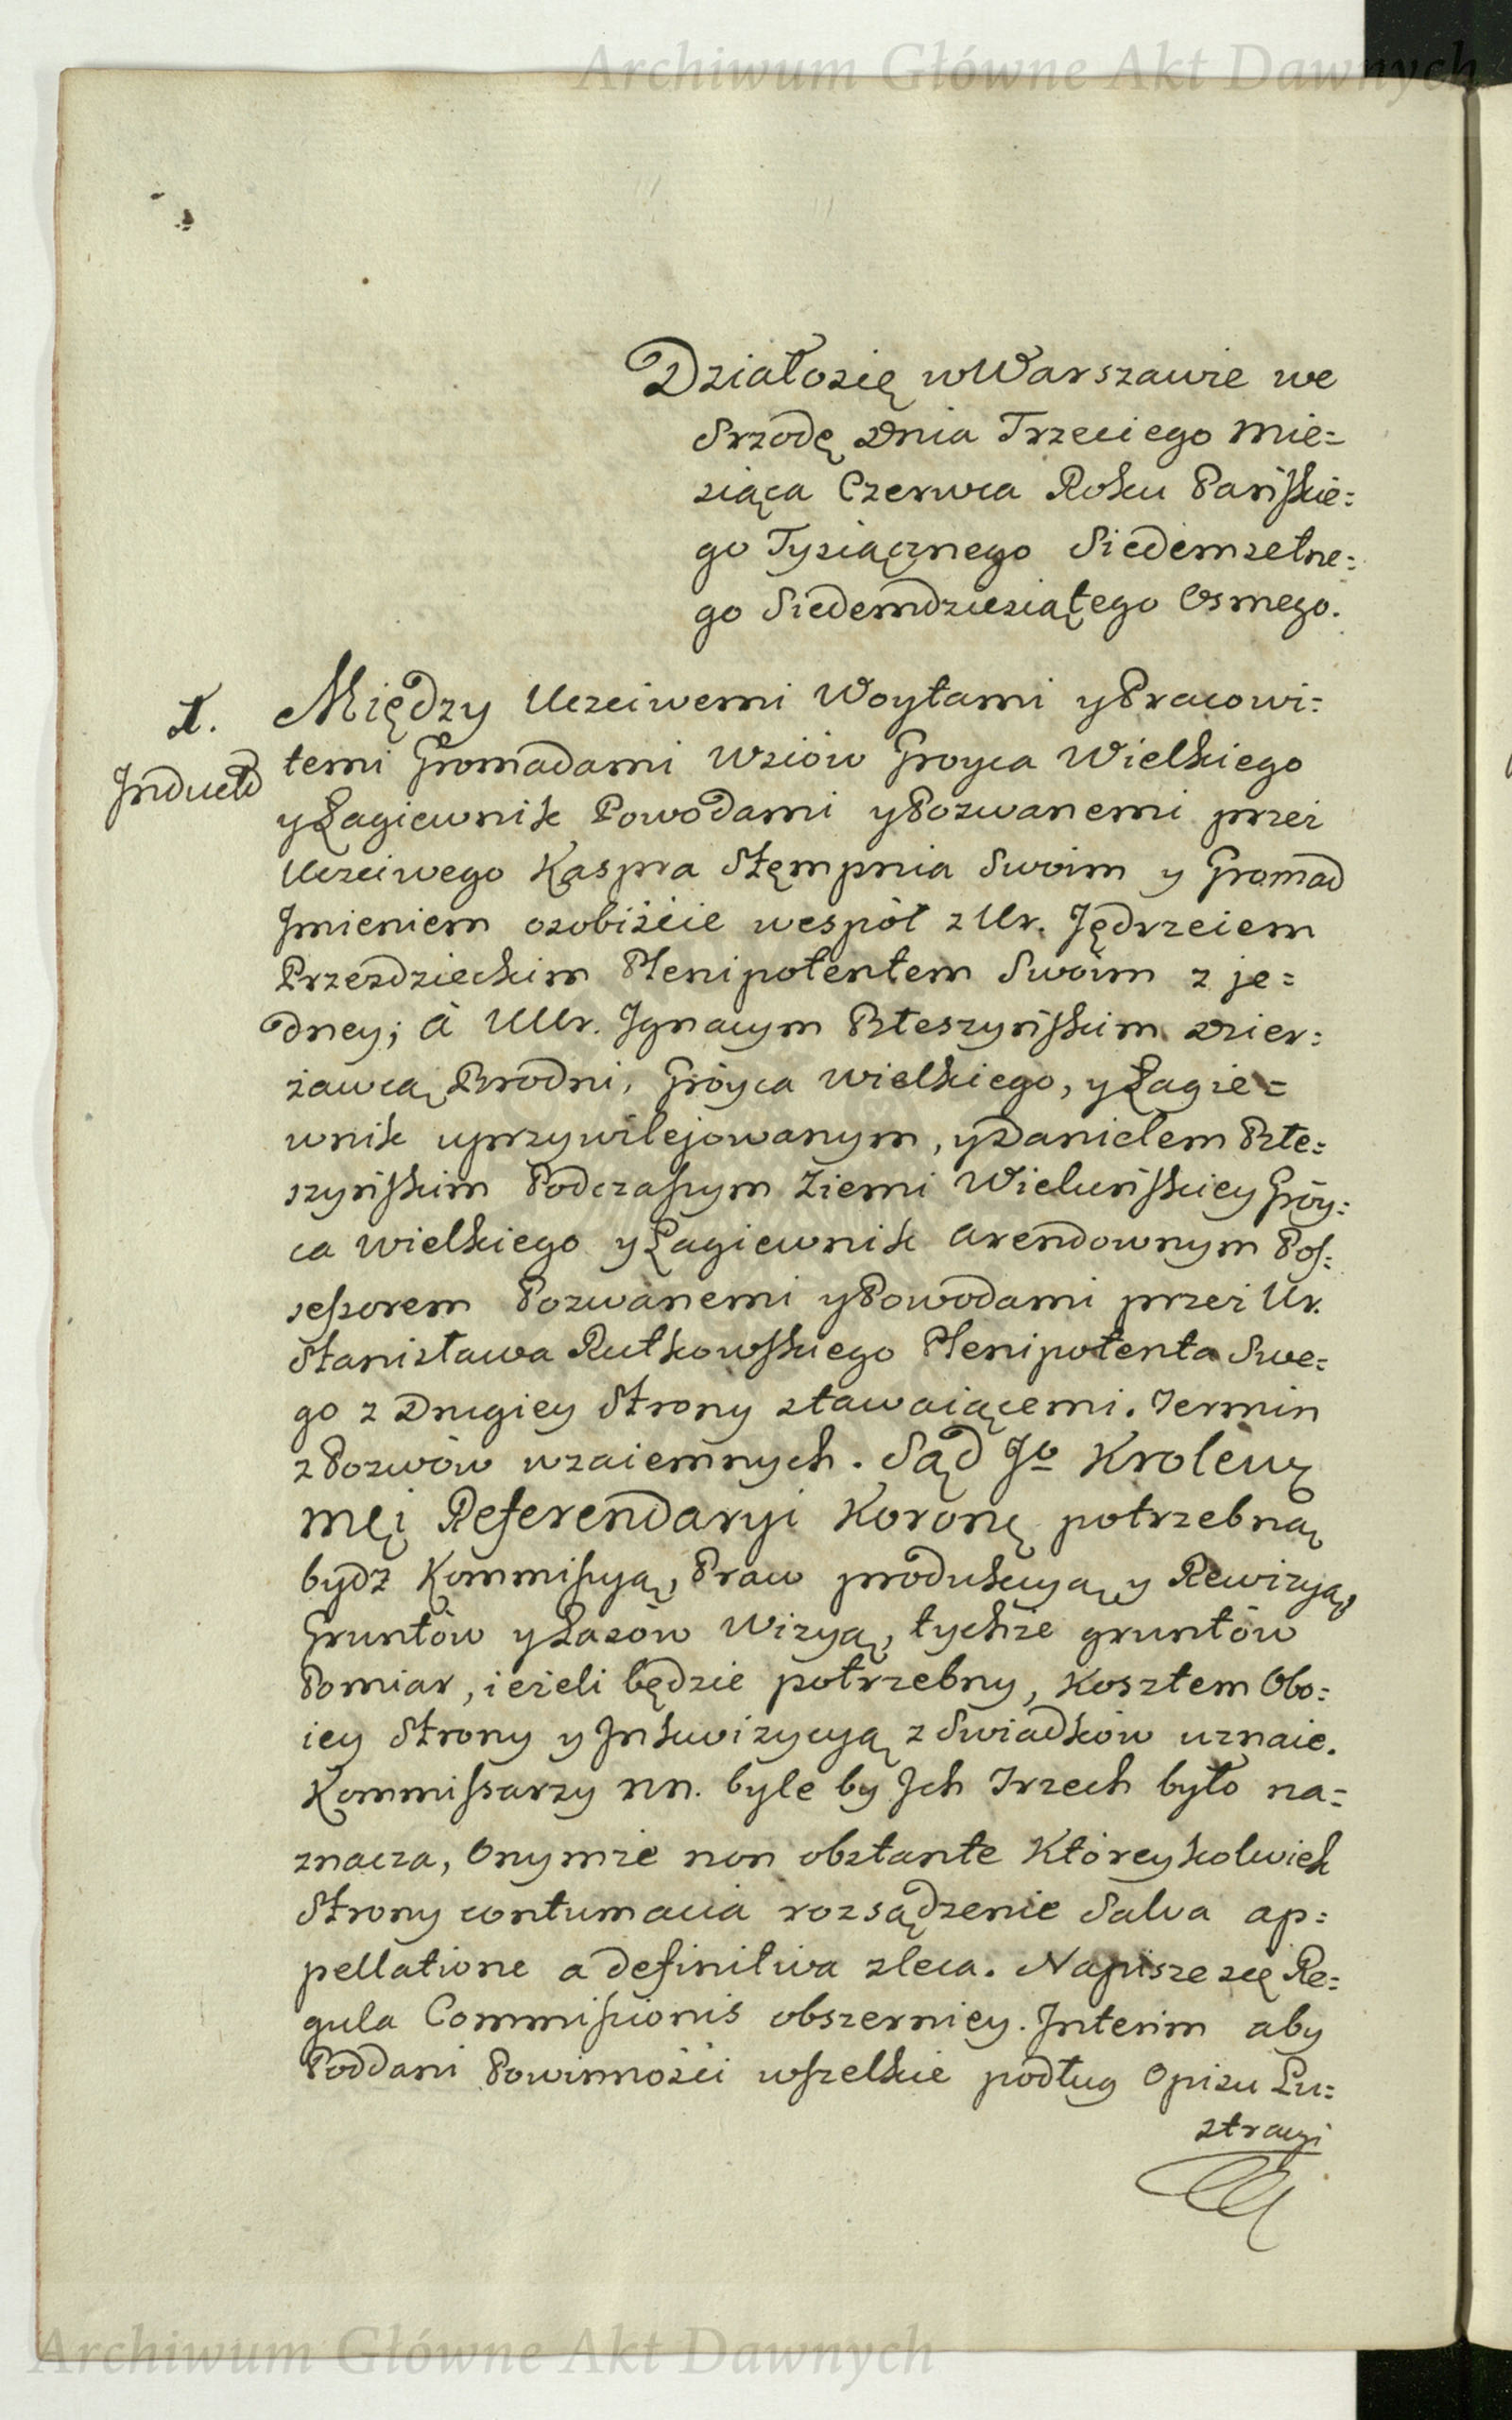 Archiwum Główne Akt Dawnych
Działosię w Warszawie we
Srzodę Dnia Trzeciego Mie=
siąca Czerwca Roku Pańskie=
go Tysiącznego Siedemsetne=
go Siedemdziesiątego Osmego.
1. Między Uczciwemi Woytami y Pracowi=
Induct temi Gromadami Wsiów Groyca Wielkiego
y Łagiewnik Powodami y Pozwanemi przez
Uczciwego Kaspra Stęmpnia Swoim y Gromad
Jmieniem osobiście wespół z Ur. Jędrzeiem
Przezdzieckim Plenipotentem Swoim z je=
dney; à UUr. Jgnacym Błeszyńskim Dzier=
żawcą Brodni, Gróyca wielkiego, y Łagie=
wnik uprzywilejowanym, y Danielem Błe=
szyńskim Podczaszym Ziemi Wieluńskiey Gróy=
ca wielkiego y Łagiewnik arendownym Pos=
sessorem Pozwanemi y Powodami przez Ur.
Stanisława Rutkowskiego Plenipotenta Swe=
go z Drugiey Strony stawaiącemi. Termin
z Pozwów wzaiemnych. Sąd Jo Krolew
mci Referendaryi Koronę potrzebną
bydź Kommissyą, Praw produkcyą y Rewizyą,
Gruntów y Lasów Wizyą, tychże gruntów
Pomiar, ieżeli będzie potrzebny, Kosztem Obo=
iey Strony y Jnkwizycyą z Swiadków uznaie.
Kommissarzy nn. byle by Jch Trzech było na=
znacza, Onymże non obstante Któreykolwiek
Strony contumacia rozsądzenie Salva ap=
pellatione a definitiva zleca. Napisze się Re=
gula Commissionis obszerniey. Interim aby
Poddani Powinności wszelkie podług Opisu Lu=
stracyi
Archiwum Główne Akt Dawnych